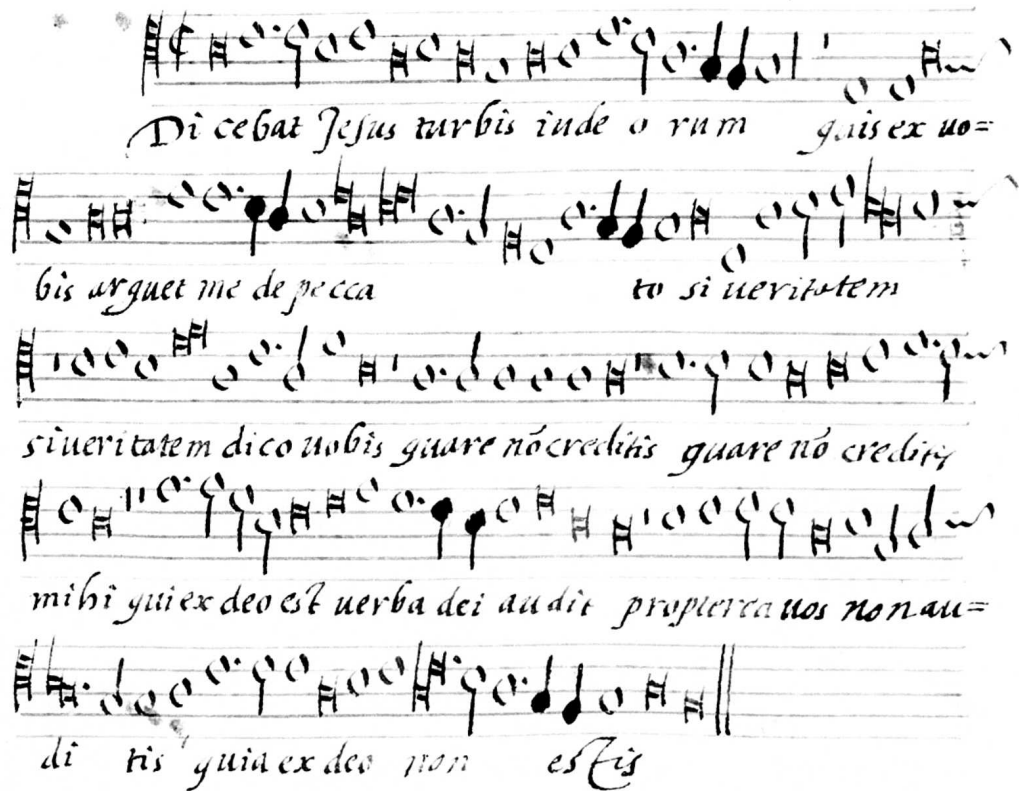 Di cebat Jesus turbis iude o rum quis ex uo=
bis arguet me de pecca to si ueritatem
si ueritatem dico uobis quare nō creditis quare nō creditis
mihi qui ex deo est uerba dei audit propterea uos non au=
di tis quia ex deo non estis